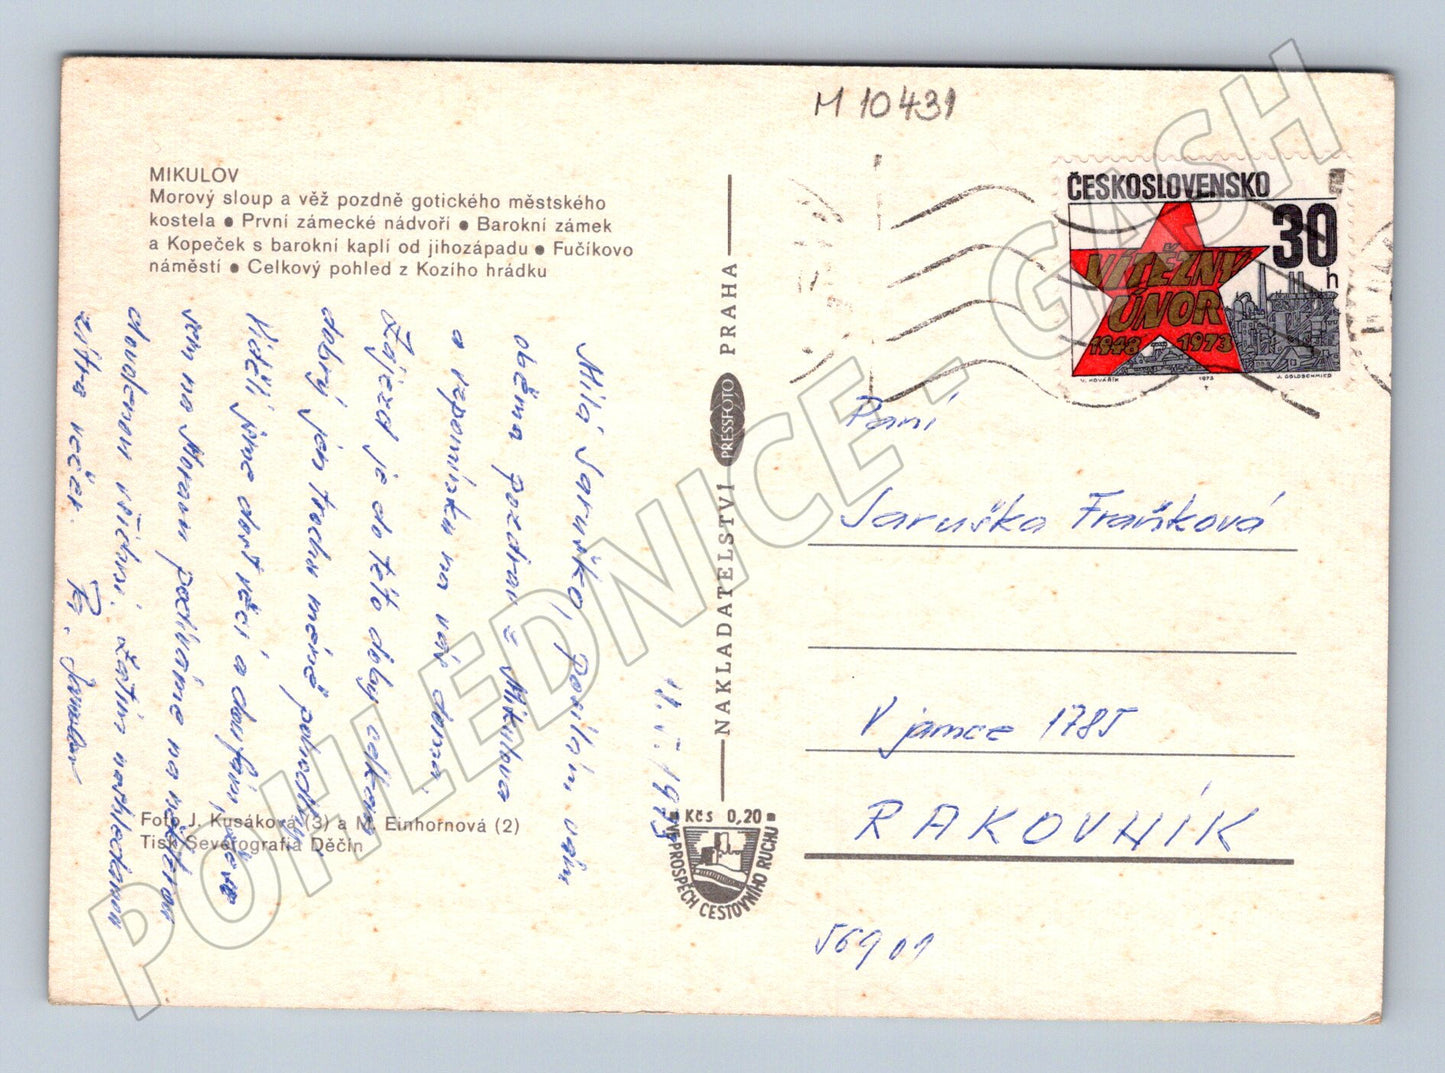 M 10431
MIKULOV
Morový sloup a věž pozdně gotického městského
kostela ● První zámecké nádvoří ● Barokní zámek
a Kopeček s barokní kaplí od jihozápadu ● Fučíkovo
náměstí ● Celkový pohled z Kozího hrádku
11. V. 1973
Milá Jaruško, posílám vám
oběma pozdrav z Mikulova
a vzpomínku na vás doma.
Zájezd je do této doby celkem
dobrý jen trochu méně pohodlný.
Viděli jsme dost věcí a doufám, že
sem na Moravu podíváme na
dovolenou všichni. Zatím nashledanou
zítra večer.
Foto J. Kusáková (3) a M. Einhornová (2)
Tisk Severografia Děčín
NAKLADATELSTVÍ PRESSFOTO PRAHA
Kčs 0,20
VE PROSPĚCH CESTOVNÍHO RUCHU
ČESKOSLOVENSKO
30 h
VÍTĚZNÝ
ÚNOR
1948 1973
V. KOVÁŘÍK 1973 J. GOLDSCHMIED
Paní
Jaruška Fraňková
V jamce 1785
RAKOVNÍK
56901
POHLEDNICE - GASH